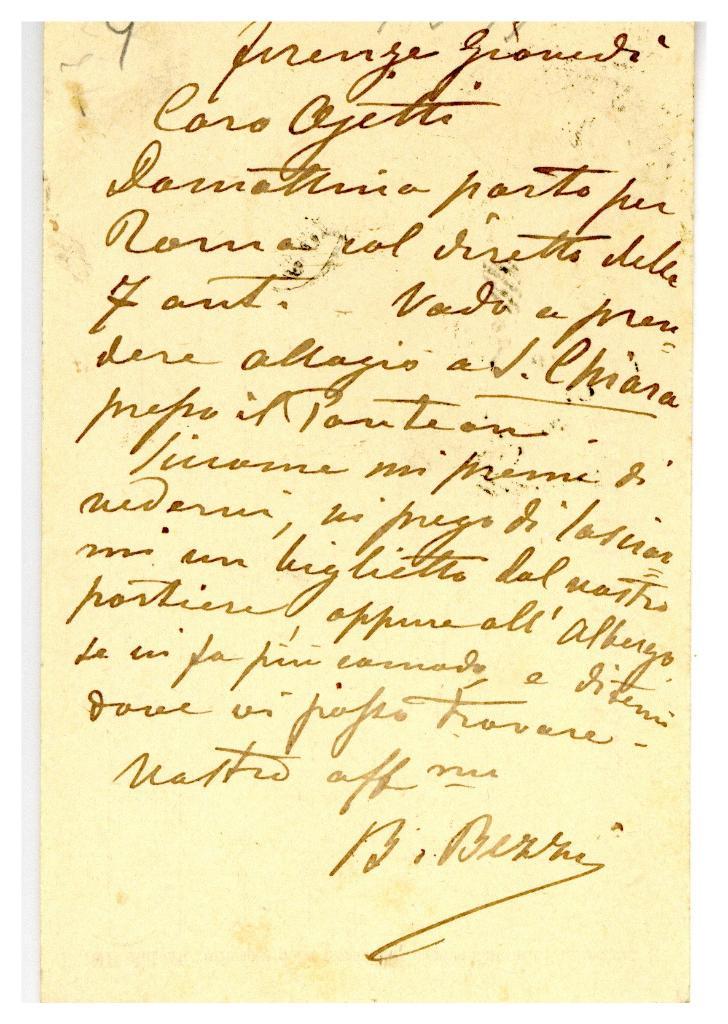 Firenze Giovedì
Caro Ojetti
Domattina parto per
Roma col diretto delle
7 ant. - Vado a pren=
dere alloggio a S. Chiara
presso il Panteon
Siccome mi preme di
vedervi, vi prego di lasciar=
mi un biglietto dal vostro
portiere, oppure all' Albergo
se vi fa più comodo, e ditemi
dove vi posso trovare -
Vostro aff mo
B. Bezzi